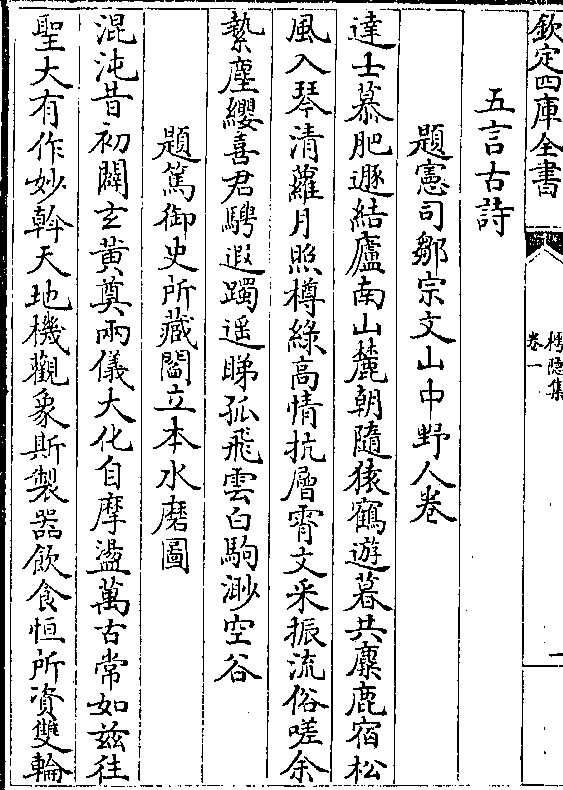 欽定四庫全書
樗隱集
卷一
一
五言古詩
題憲司鄒宗文山中野人卷
達士慕肥遯結廬南山麓朝隨猿鶴遊暮共麋鹿宿松
風入琴清蘿月照樽綠高情抗層霄文采振流俗嗟余
縶塵纓喜君騁遐躅遥睇孤飛雲白駒渺空谷
題篤御史所藏閻立本水磨圖
混沌昔初闢玄黄奠兩儀大化自摩盪萬古常如兹往
聖大有作妙斡天地機觀象斯製器飲食恒所資雙輪